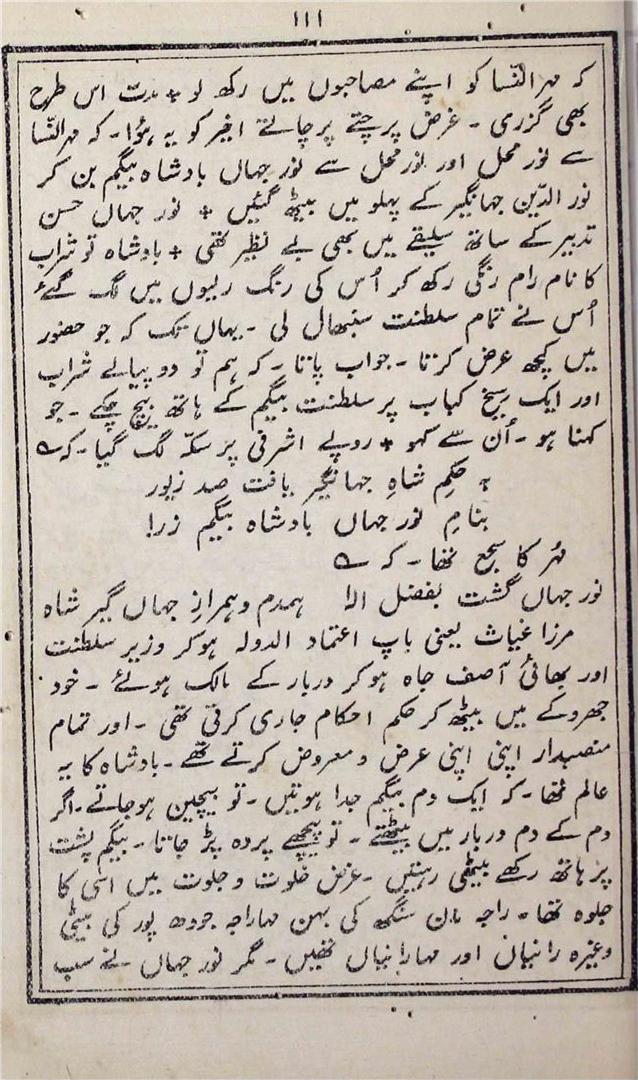 ۱۱۱
کہ مہر النّسا کو اپنے مصاحبوں میں رکھ لو + مدت اس طرح
بھی گزری ۔ غرض پرچتے پرچاتے اخیر کو یہ ہؤا ۔ کہ مہر النّسا
سے نور محل اور نور محل سے نور جہاں بادشاہ بیگم بن کر
نور الدّین جہانگیر کے پہلو میں بیٹھ گئیں + نور جہاں حسن
تدبیر کے ساتھ سلیقے میں بھی بے نظیر تھی + بادشاہ تو شراب
کا نام رام رنگی رکھ کر اُس کی رنگ رلیوں میں لگ گئے
اُس نے تمام سلطنت سنبھال لی ۔ یہاں تک کہ جو حضور
میں کچھ عرض کرتا ۔ جواب پاتا ۔ کہ ہم تو دو پیالے شراب
اور ایک سیخ کباب پر سلطنت بیگم کے ہاتھ بیچ چکے ۔ جو
کہنا ہو ۔ اُن سے کہو + روپے اشرفی پر سکّہ لگ گیا ۔ کہ ؎
بہ حکمِ شاہِ جہانگیر یافت صد زیور
بنامِ نور جہاں بادشاہ بیگم زر!
مُہر کا سجع تھا ۔ کہ ؎
نور جہاں گشت بفضل الٰہ ہمدم و ہمرازِ جہاں گیر شاہ
مرزا غیاث یعنی باپ اعتماد الدولہ ہوکر وزیر سلطنت
اور بھائی آصف جاہ ہوکر دربار کے مالک ہوئے ۔ خود
جھروکے میں بیٹھ کر حکم احکام جاری کرتی تھی ۔ اور تمام
منصبدار اپنی اپنی عرض و معروض کرتے تھے ۔ بادشاہ کا یہ
عالم تھا ۔ کہ ایک دم بیگم جدا ہوتیں ۔ تو بیچین ہو جاتے ۔ اگر
دم کے دم دربار میں بیٹھتے ۔ تو پیچھے پردہ پڑ جاتا ۔ بیگم پشت
پر ہاتھ رکھے بیٹھی رہتیں ۔ غرض خلوت و جلوت میں اسی کا
جلوہ تھا + راجہ مان سنگھ کی بہن مہاراجہ جودھ پور کی بیٹی
وغیرہ رانیاں اور مہارانیاں تھیں ۔ مگر نور جہاں نے سب